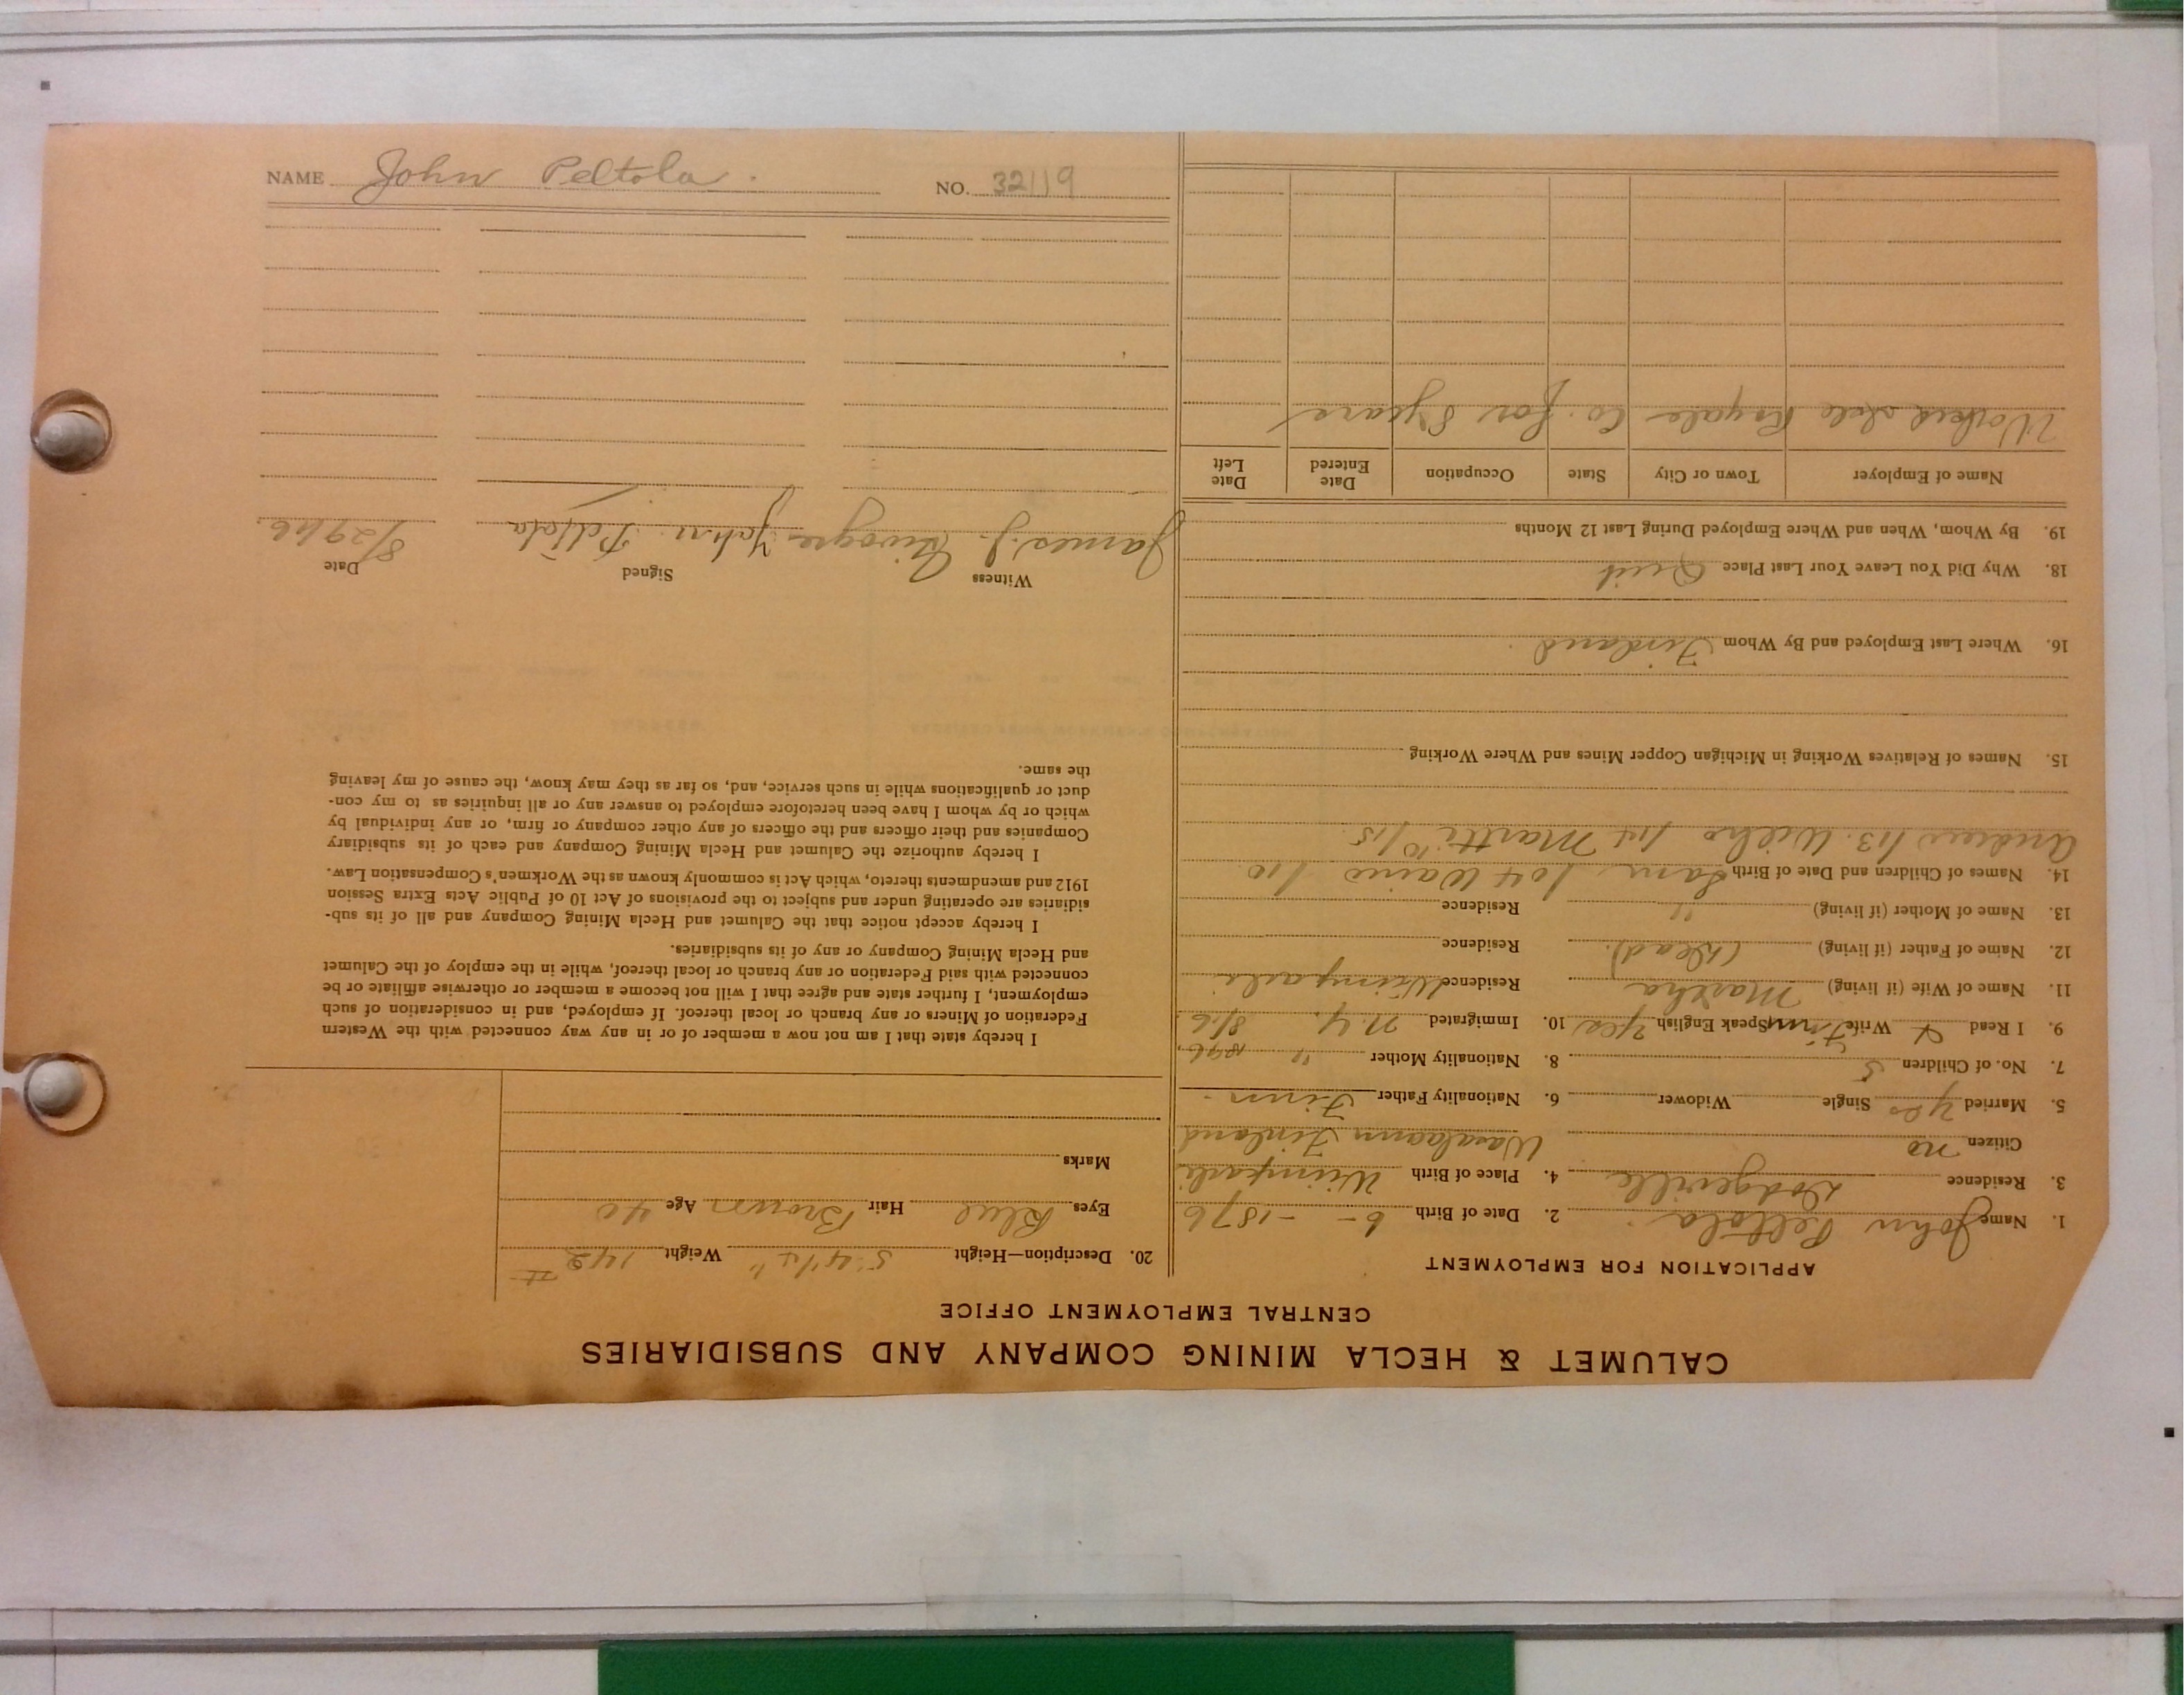 NAME John Peltola. NO. 32119
CALUMET & HECLA MINING COMPANY AND SUBSIDIARIES
CENTRAL EMPLOYMENT OFFICE
APPLICATION FOR EMPLOYMENT
1. Name John Peltola. 2. Date of Birth 6 - - 1876
3. Residence Dodgeville 4. Place of Birth Wiimpali
Citizen no Wasalaann Finland
5. Married yes Single Widower 6. Nationality Father Finn.
7. No. of Children 5 8. Nationality Mother "
9. I Read & Write Finn Speak English yes 10. Immigrated N.Y. 8/16
11. Name of Wife (if living) Martha Residence Wiimpali
12. Name of Father (if living) (Dead). Residence
13. Name of Mother (if living) " Residence
14. Names of Children and Date of Birth Waino 1/10.
Andrew 1/13. Wilho Martti 10/15
15. Names of Relatives Working in Michigan Copper Mines and Where Working
16. Where Last Employed and By Whom Finland.
18. Why Did You Leave Your Last Place Quit
19. By Whom, When and Where Employed During Last 12 Months
Name of Employer Town or City State Occupation Date Entered Date Left
Worked Isle Royale Co. for 8 years
20. Description—Height 5' 4 1/4" Weight 142 #
Eyes Blue Hair Brown Age 40
Marks
I hereby state that I am not now a member of or in any way connected with the Western
Federation of Miners or any branch or local thereof. If employed, and in consideration of such
employment, I further state and agree that I will not become a member or otherwise affiliate or be
connected with said Federation or any branch or local thereof, while in the employ of the Calumet
and Hecla Mining Company or any of its subsidiaries.
I hereby accept notice that the Calumet and Hecla Mining Company and all of its sub-
sidiaries are operating under and subject to the provisions of Act 10 of Public Acts Extra Session
1912 and amendments thereto, which Act is commonly known as the Workmen's Compensation Law.
I hereby authorize the Calumet and Hecla Mining Company and each of its subsidiary
Companies and their officers and the officers of any other company or firm, or any individual by
which or by whom I have been heretofore employed to answer any or all inquiries as to my con-
duct or qualifications while in such service, and, so far as they may know, the cause of my leaving
the same.
Witness Signed Date
James J. John Peltola 8/29/16.